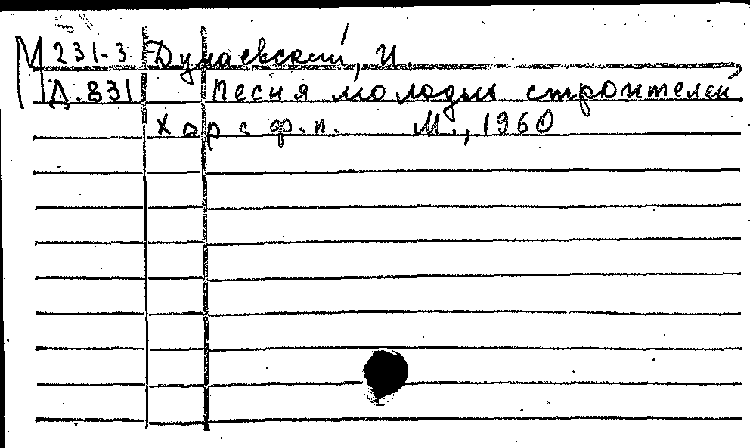 М 231-3 Дунаевский, И.
Д. 831 Песня молодых строителей
Хор с ф.п. М., 1960